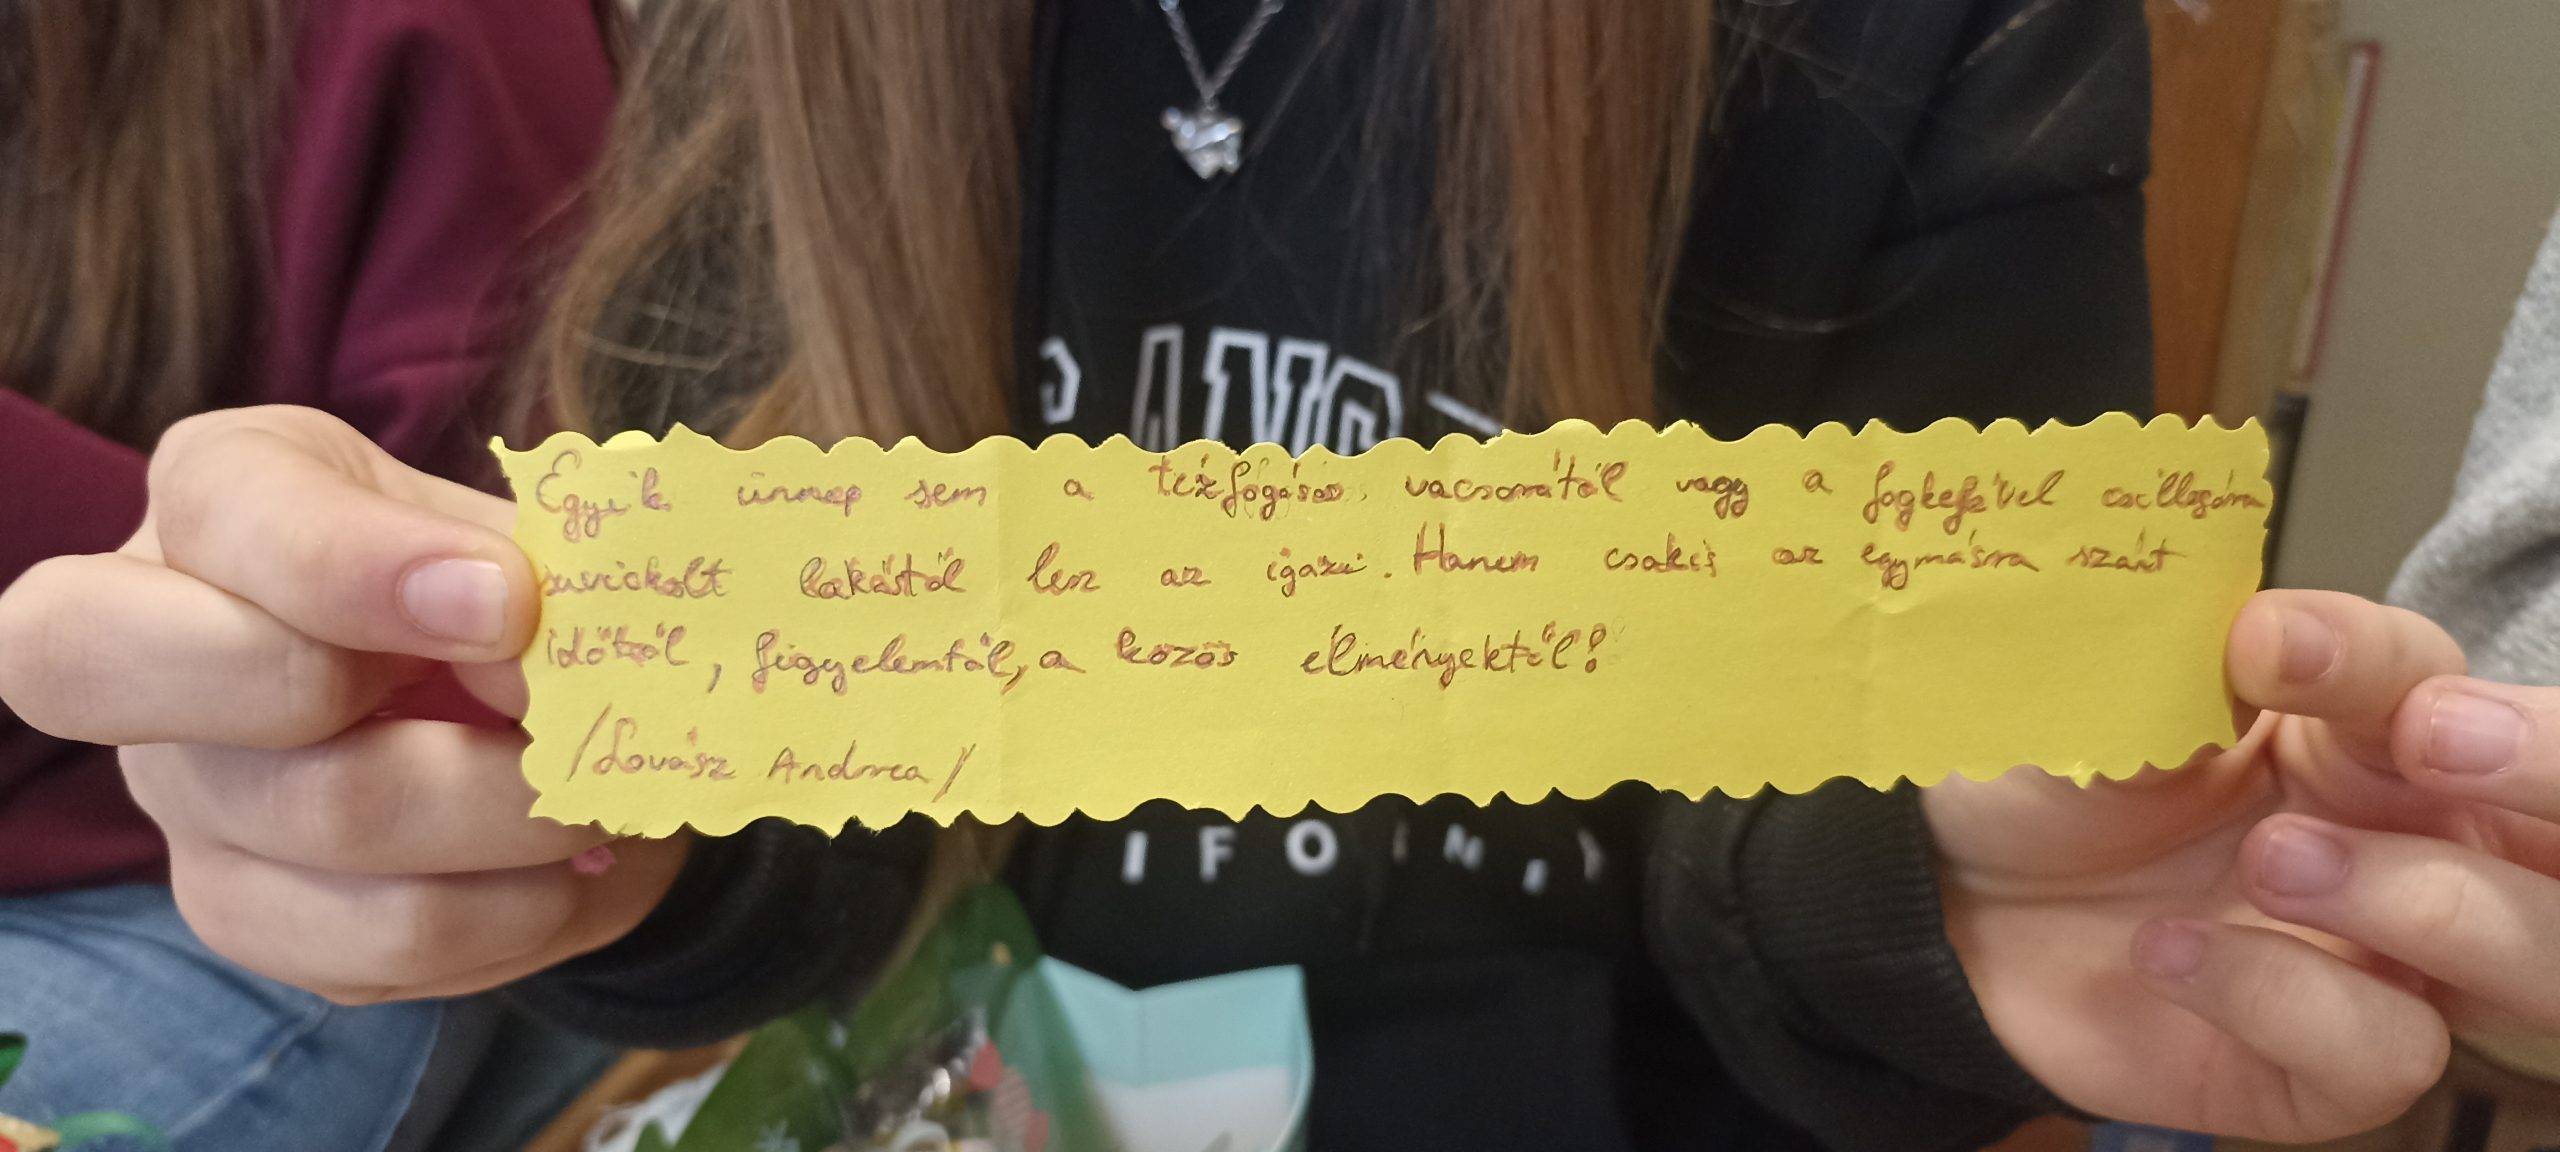 Egyik ünnep sem a tízfogásos vacsorától vagy a fogkefével csillogóra
suvickolt lakástól lesz az igazi. Hanem csakis az egymásra szánt
időtől, figyelemtől, a közös élményektől!
/Lovász Andrea/